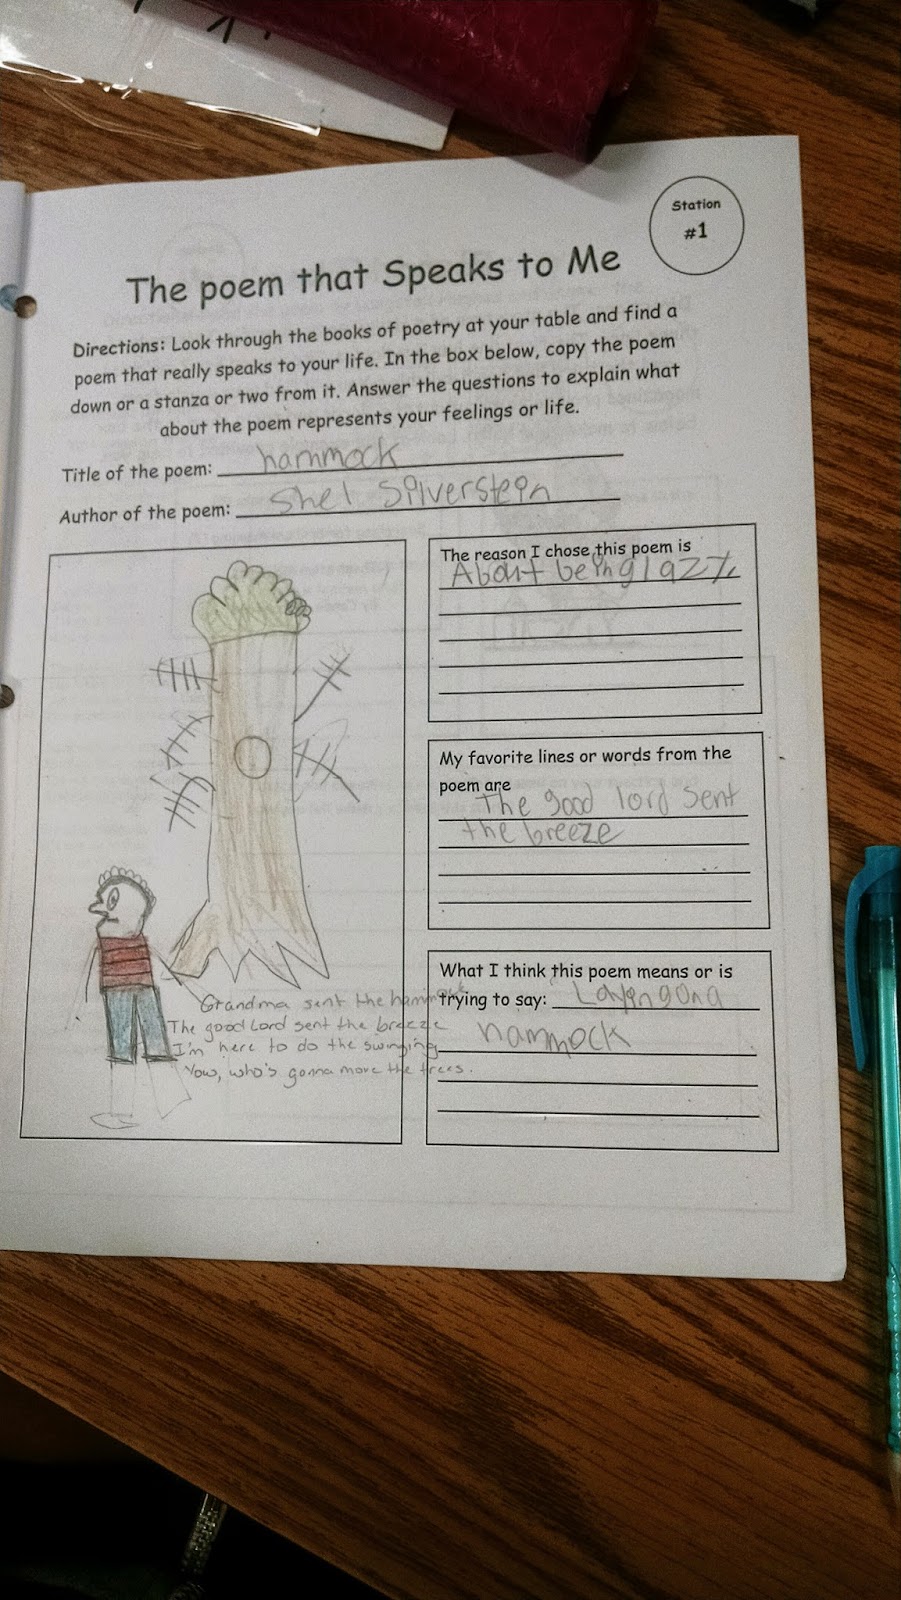 Station
#1
The poem that Speaks to Me
Directions: Look through the books of poetry at your table and find a
poem that really speaks to your life. In the box below, copy the poem
down or a stanza or two from it. Answer the questions to explain what
about the poem represents your feelings or life.
Title of the poem: hammock
Author of the poem: Shel Silverstein
Grandma sent the hammock
The good Lord sent the breeze
I'm here to do the swinging
Now, who's gonna move the trees.
The reason I chose this poem is
About being lazy
My favorite lines or words from the
poem are
The good lord sent
the breeze
What I think this poem means or is
trying to say: Laying on a
hammock